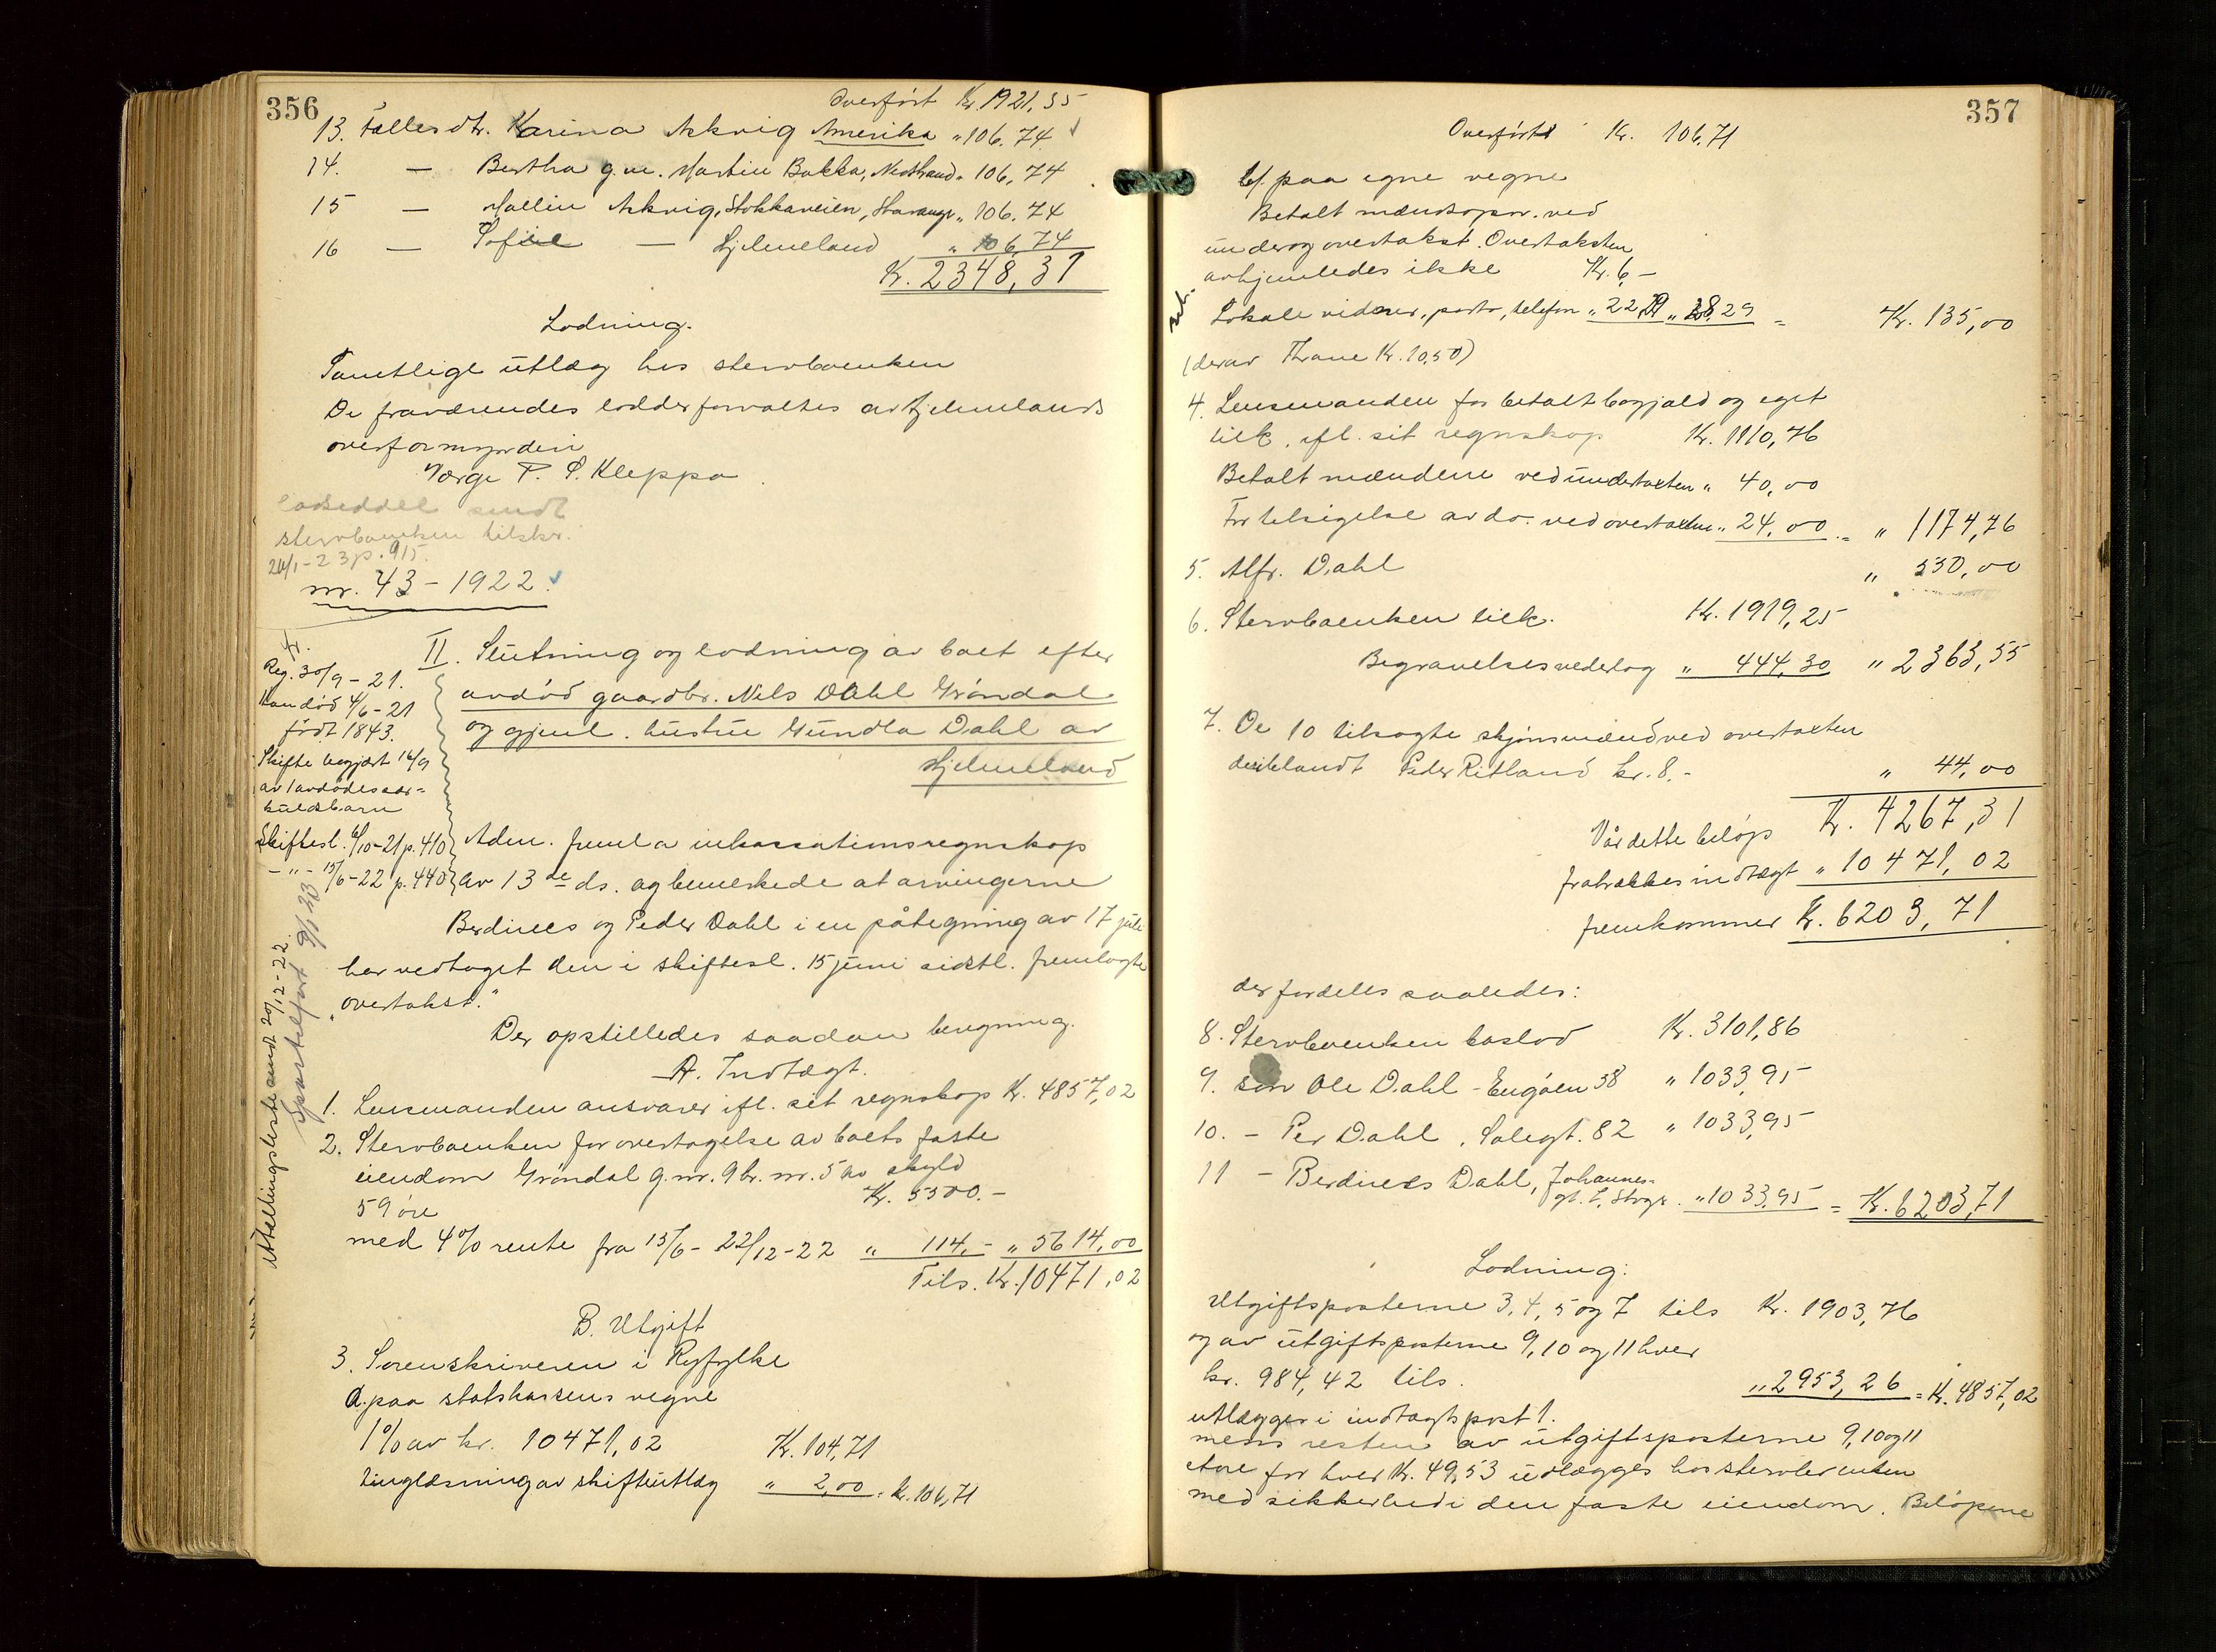 356
Overført Kr. 1921,35
13. Fællesdtr. Karina Askvig Amerika " 106.74
14. — Bertha g.m. Martin Bakka, Nedstrand " 106,74
15 — Mallin Askvig, Stokkaveien, Stavanger " 106.74
16 — Sofie — Hjelmeland " 106,74
Kr. 2348,31
Lodning.
Samtlige utlæg hos stervboenken
De fraværendes lodder forvaltes av Hjelmelands
overformynderi
Værge P. P. Kleppa
lodseddel sendt
stervboenken tilskr.
24/1-23 p. 915.
nr. 43 - 1922.
Reg. 30/9 - 21.
Han død 4/6 - 21
født 1843.
Skifte begjært 16/9
av 1 avdødes sær=
kuldsbarn
Skiftesl. 6/10-21 p. 410
- " - 15/6-22 p. 440
Avstellingsliste sendt 20/12-22.
Sportelført 9/1 23
II. Slutning og lodning av boet efter
avdød gaardbr. Nils Dahl Grøndal
og gjenl. hustru Gundla Dahl av
Hjelmeland
Adm. freml a inkassationsregnskap
av 13de ds. og bemerkede at arvingerne
Berdines og Peder Dahl i en påtegning av 17 juli
har vedtaget den i skiftesl. 15 juni sidstl. fremlagte
"overtakst."
Der opstilledes saadan beregning.
A. Indtægt.
1. Lensmanden ansvarer ifl. sit regnskap Kr. 4857,02
2. Stervboenken for overtagelse av boets faste
eiendom Grøndal g.nr. 9 br. nr. 5 av skyld
59 øre Kr. 5500.-
med 4% rente fra 15/6 - 22/12-22 " 114,- " 5614,00
Tils. Kr. 10471,02
B. Utgift
3. Sorenskriveren i Ryfylke
a. paa statskassens vegne
1% av kr. 10471,02 Kr. 104,71
tinglæsning av skifteutlæg " 2,00 = kr. 106,71
357
Overført Kr. 106,71
b/. paa egne vegne
Betalt mændsopn. ved
under og overtakst. Overtaksten
avhjemledes ikke Kr. 6 -
Lokale vidner, porto, telefon " 22,29 " 28,29 = Kr. 135,00
(derav Thrane Kr. 10,50)
4. Lensmanden for betalt bogjæld og eget
tilk. ifl. sit regnskap Kr. 1110,76
Betalt mændene ved undertaxten " 40,00
For tilsigelse av do. ved overtaxten " 24,00 = " 1174,76
5. Alfr. Dahl " 550,00
6. Stervboenken tilk. Kr. 1919,25
Begravelsesvederlag " 444,30 " 2363,55
7. De 10 tilsagte skjønsmænd ved overtaxten
deriblandt Peder Ritland kr. 8.- " 44,00
Kr. 4267,31
Når dette beløp
fratrækkes indtægt " 10471,02
fremkommer Kr. 6203,71
der fordeles saaledes:
8. Stervboenken boslod Kr. 3101,86
9. søn Ole Dahl - Engøen 38 " 1033,95
10. - Per Dahl, Solegt. 82 " 1033,95
11 - Berdines Dahl, Johannes-
gt. 2, Stvgr. " 1033,95 = Kr. 6203,71
Lodning:
Utgiftsposterne 3, 4, 5 og 7 tils Kr. 1903,76
og av utgiftsposterne 9, 10 og 11 hver
kr. 984,42 tils. " 2953,26 = Kr. 4857,02
utlægges i indtægtspost 1.
mens resten av utgiftsposterne 9, 10 og 11
for hver Kr. 49,53 utlægges hos stervboenken
med sikkerhed i den faste eiendom. Beløpene